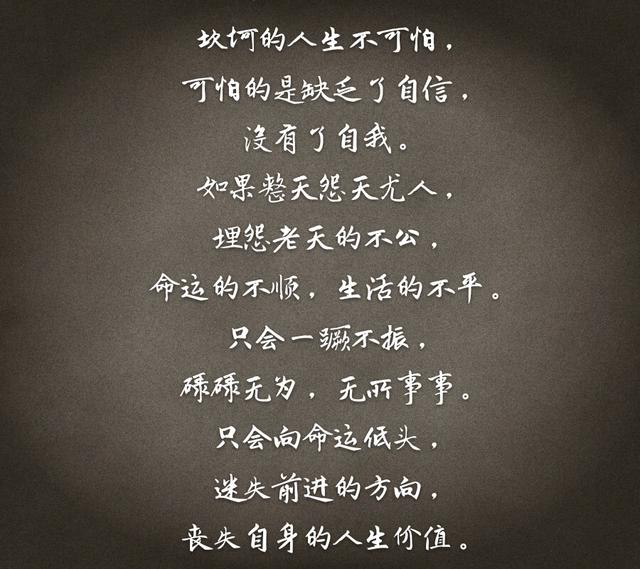 坎坷的人生不可怕，
可怕的是缺乏了自信，
没有了自我。
如果整天怨天尤人，
埋怨老天的不公，
命运的不顺，生活的不平。
只会一蹶不振，
碌碌无为，无所事事。
只会向命运低头，
迷失前进的方向，
丧失自身的人生价值。